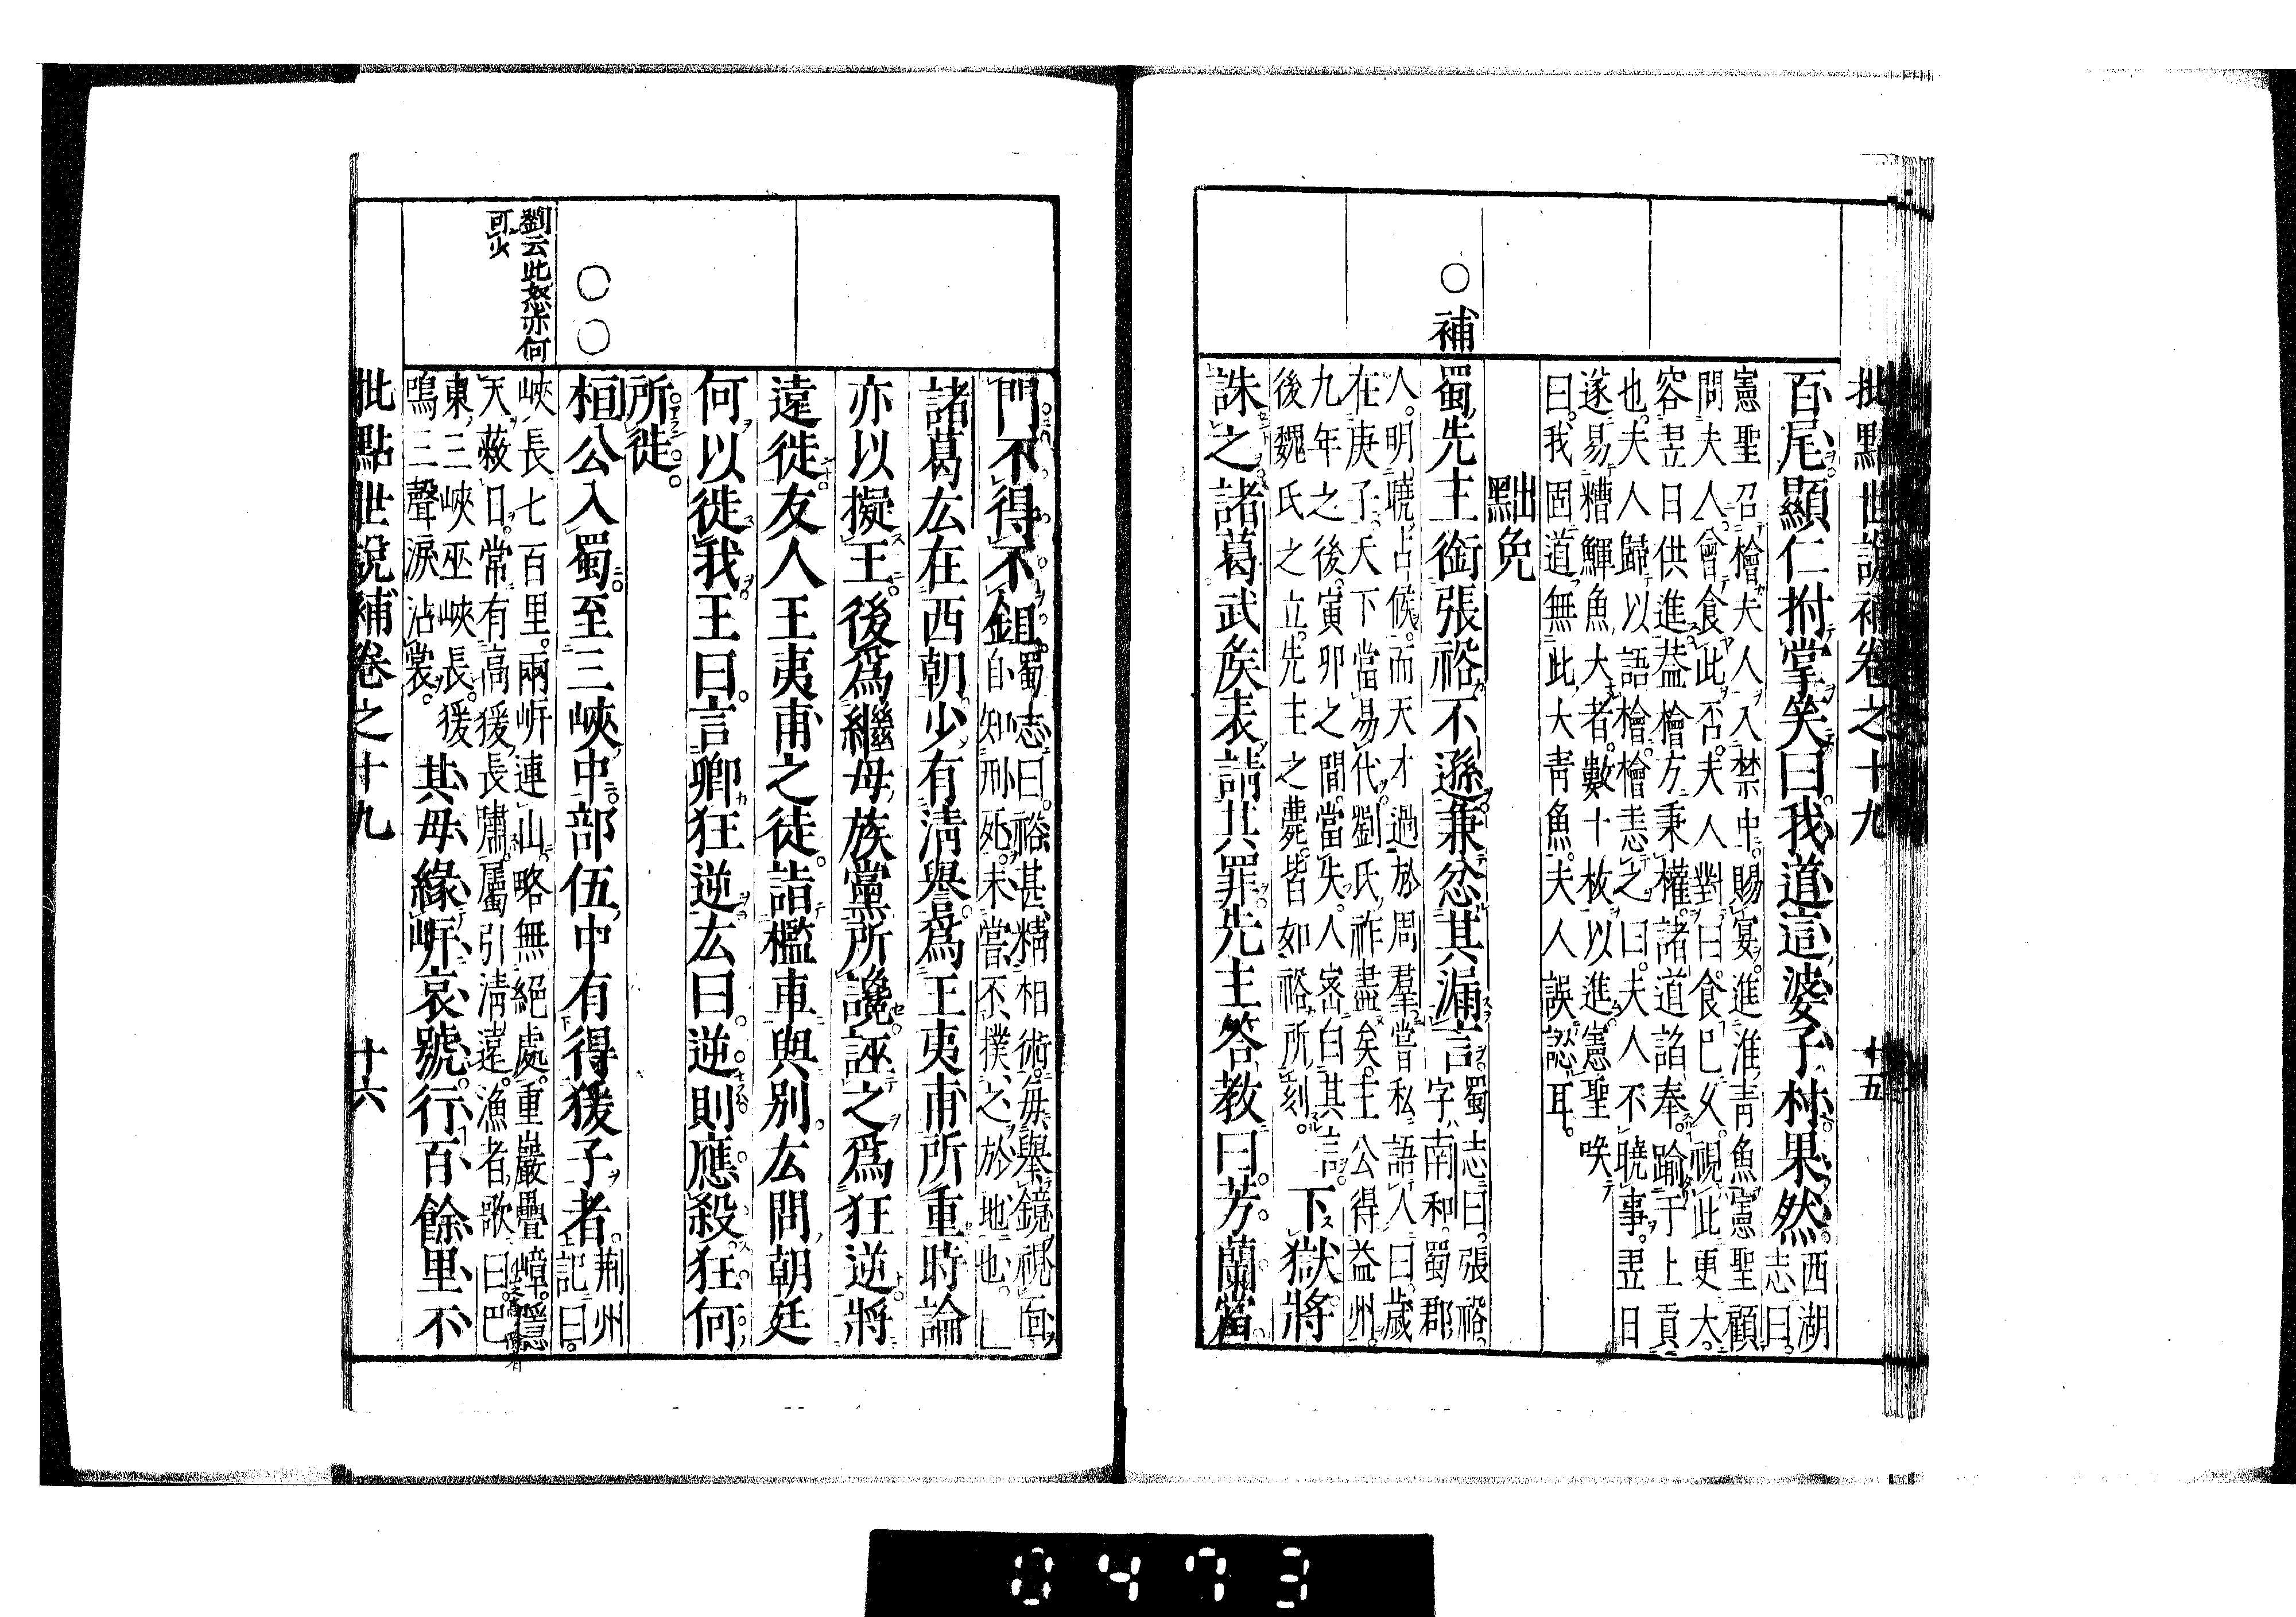 批點世說補卷之十九
十五
百尾顯仁拊掌笑曰我道這婆子村果然西湖志曰
憲聖召檜夫人入禁中賜宴進淮青魚憲聖顧
問夫人曾食此否夫人對曰食已久視此更大
容翌日供進葢檜方秉權諸道諂奉踰于上貢
也夫人歸以語檜檜恚之曰夫人不曉事翌日
遂易糟鯶魚大者數十枚以進憲聖咲
曰我固道無此大青魚夫人誤認耳
黜免
補
蜀先主銜張裕不遜兼忿其漏言蜀志曰張裕
字南和蜀郡
人明曉占候而天才過於周羣嘗私語人曰歲
在庚子天下當易代劉氏祚盡矣主公得益州
九年之後寅卯之間當失人密白其言
後魏氏之立先主之薨皆如裕所刻
下獄將
誅之諸葛武矦表請其罪先主答教曰芳蘭當
門不得不鉏蜀志曰裕甚精相術每舉鏡視面
自知刑死未嘗不撲之於地也
諸葛厷在西朝少有淸譽爲王夷甫所重時論
亦以擬王後爲繼母族黨所讒誣之爲狂逆將
遠徙友人王夷甫之徒詣檻車與別厷問朝廷
何以徙我王曰言卿狂逆厷曰逆則應殺狂何
所徙
桓公入蜀至三峽中部伍中有得猨子者荊州
記曰
峽長七百里兩岍連山略無絕處重巖疊嶂隱
天蔽日常有高猨長嘯屬引淸遠漁者歌曰巴
東三峽巫峽長猨
鳴三聲淚沾裳
其母緣岍哀號行百餘里不
劉云此怒亦何
可少
批點世說補卷之十九
十六
0473